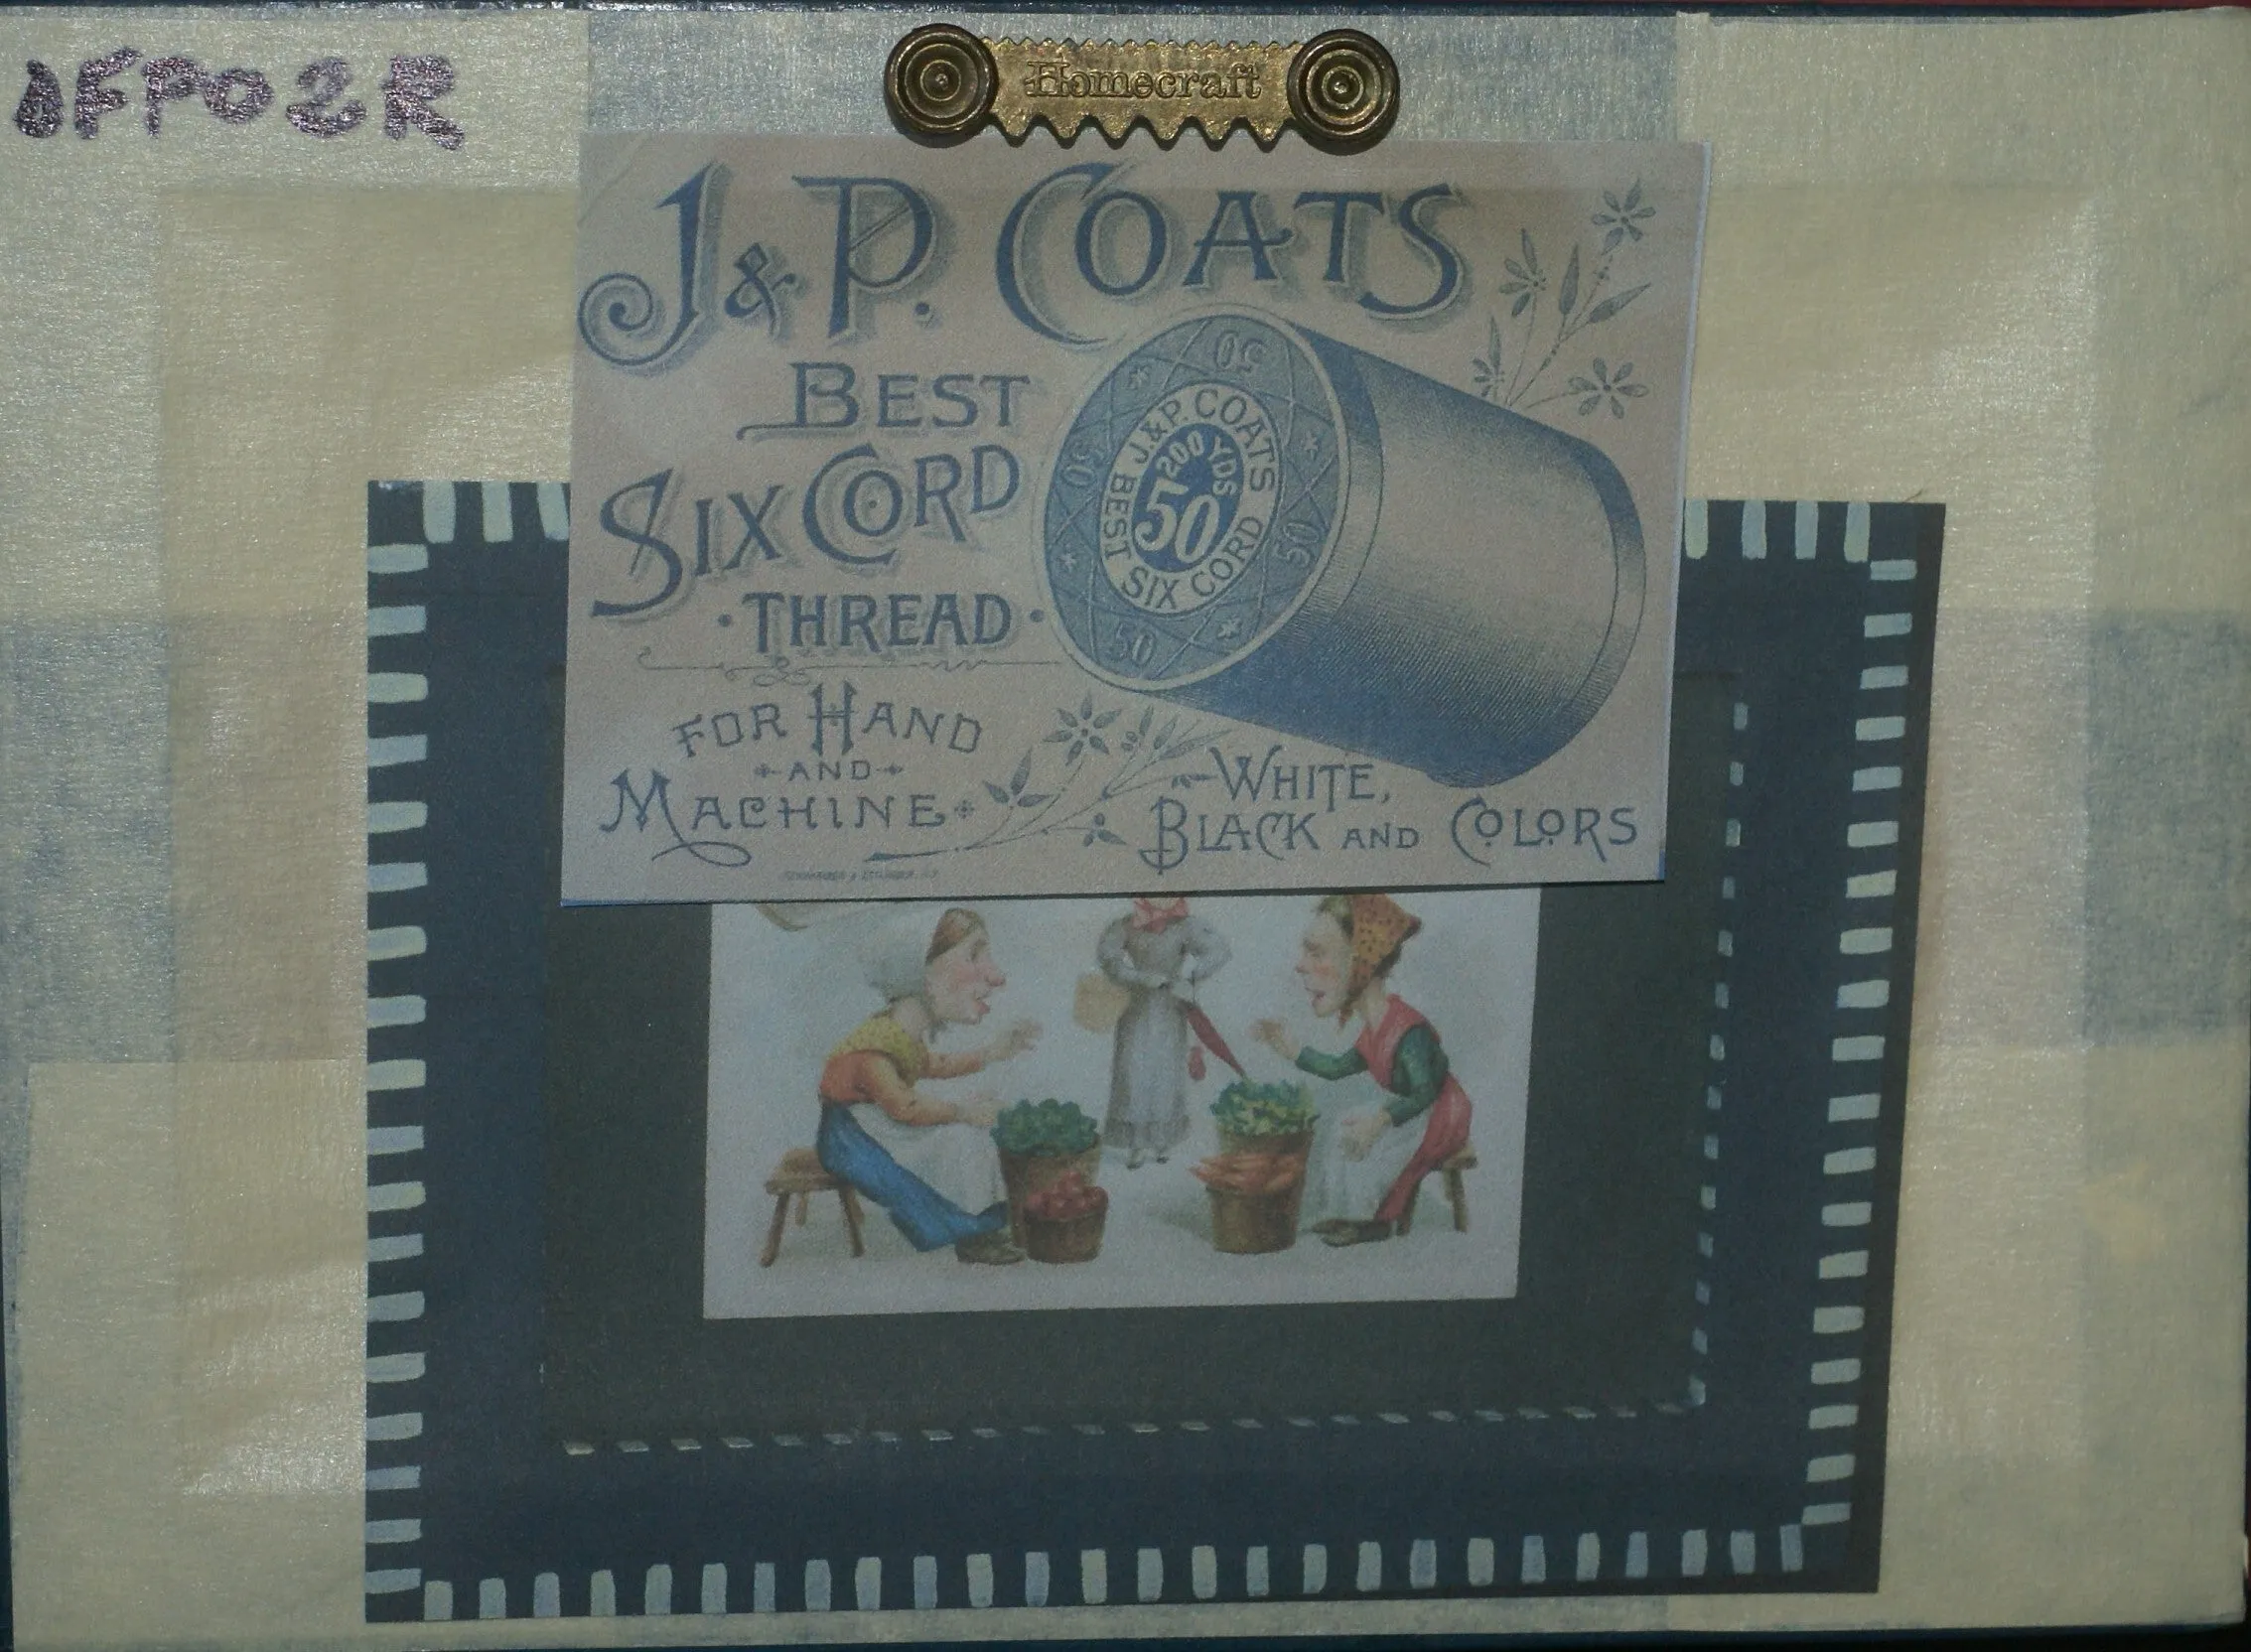 Homecraft
J & P. COATS
BEST
SIX CORD
· THREAD ·
FOR HAND
AND
MACHINE
WHITE,
BLACK AND COLORS
J. & P. COATS
BEST SIX CORD
200 YDS
50
50
50
50
50